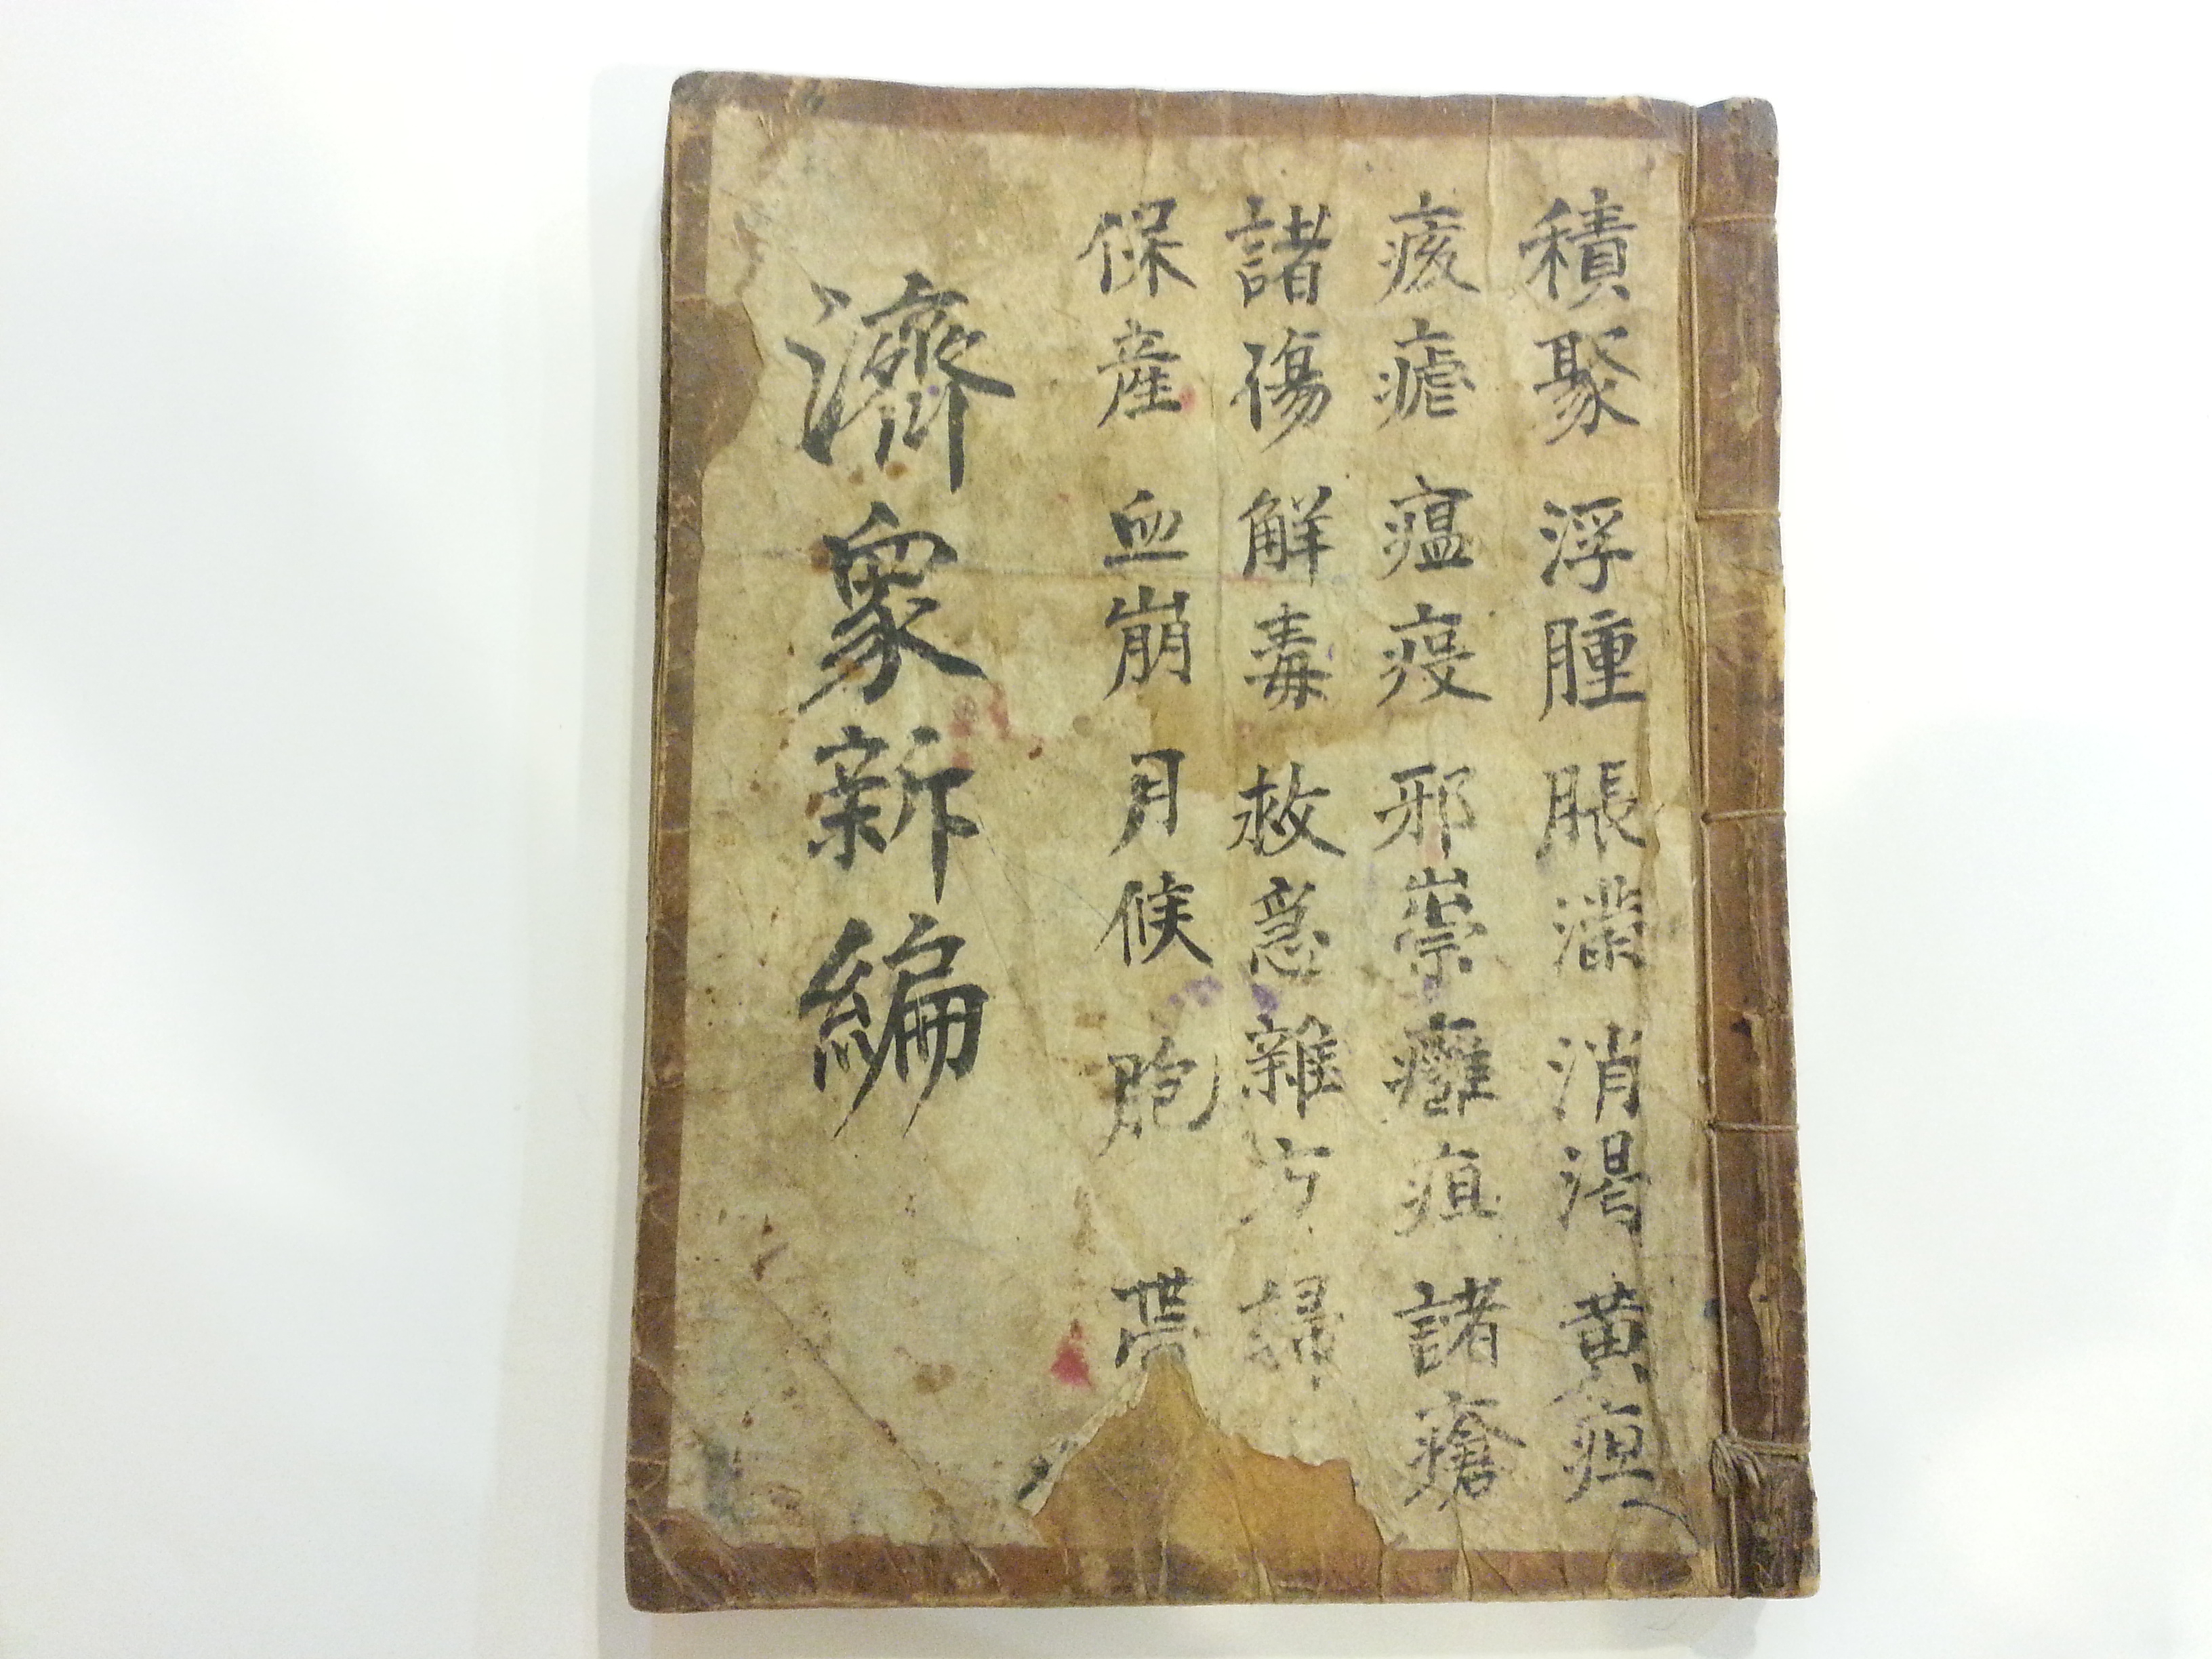 積聚 浮腫 脹滿 消渴 黃疸
痎瘧 瘟疫 邪崇 癰疽 諸瘡
諸傷 解毒 救急 雜方 婦
保産 血崩 月候 胞 帶
濟衆新編